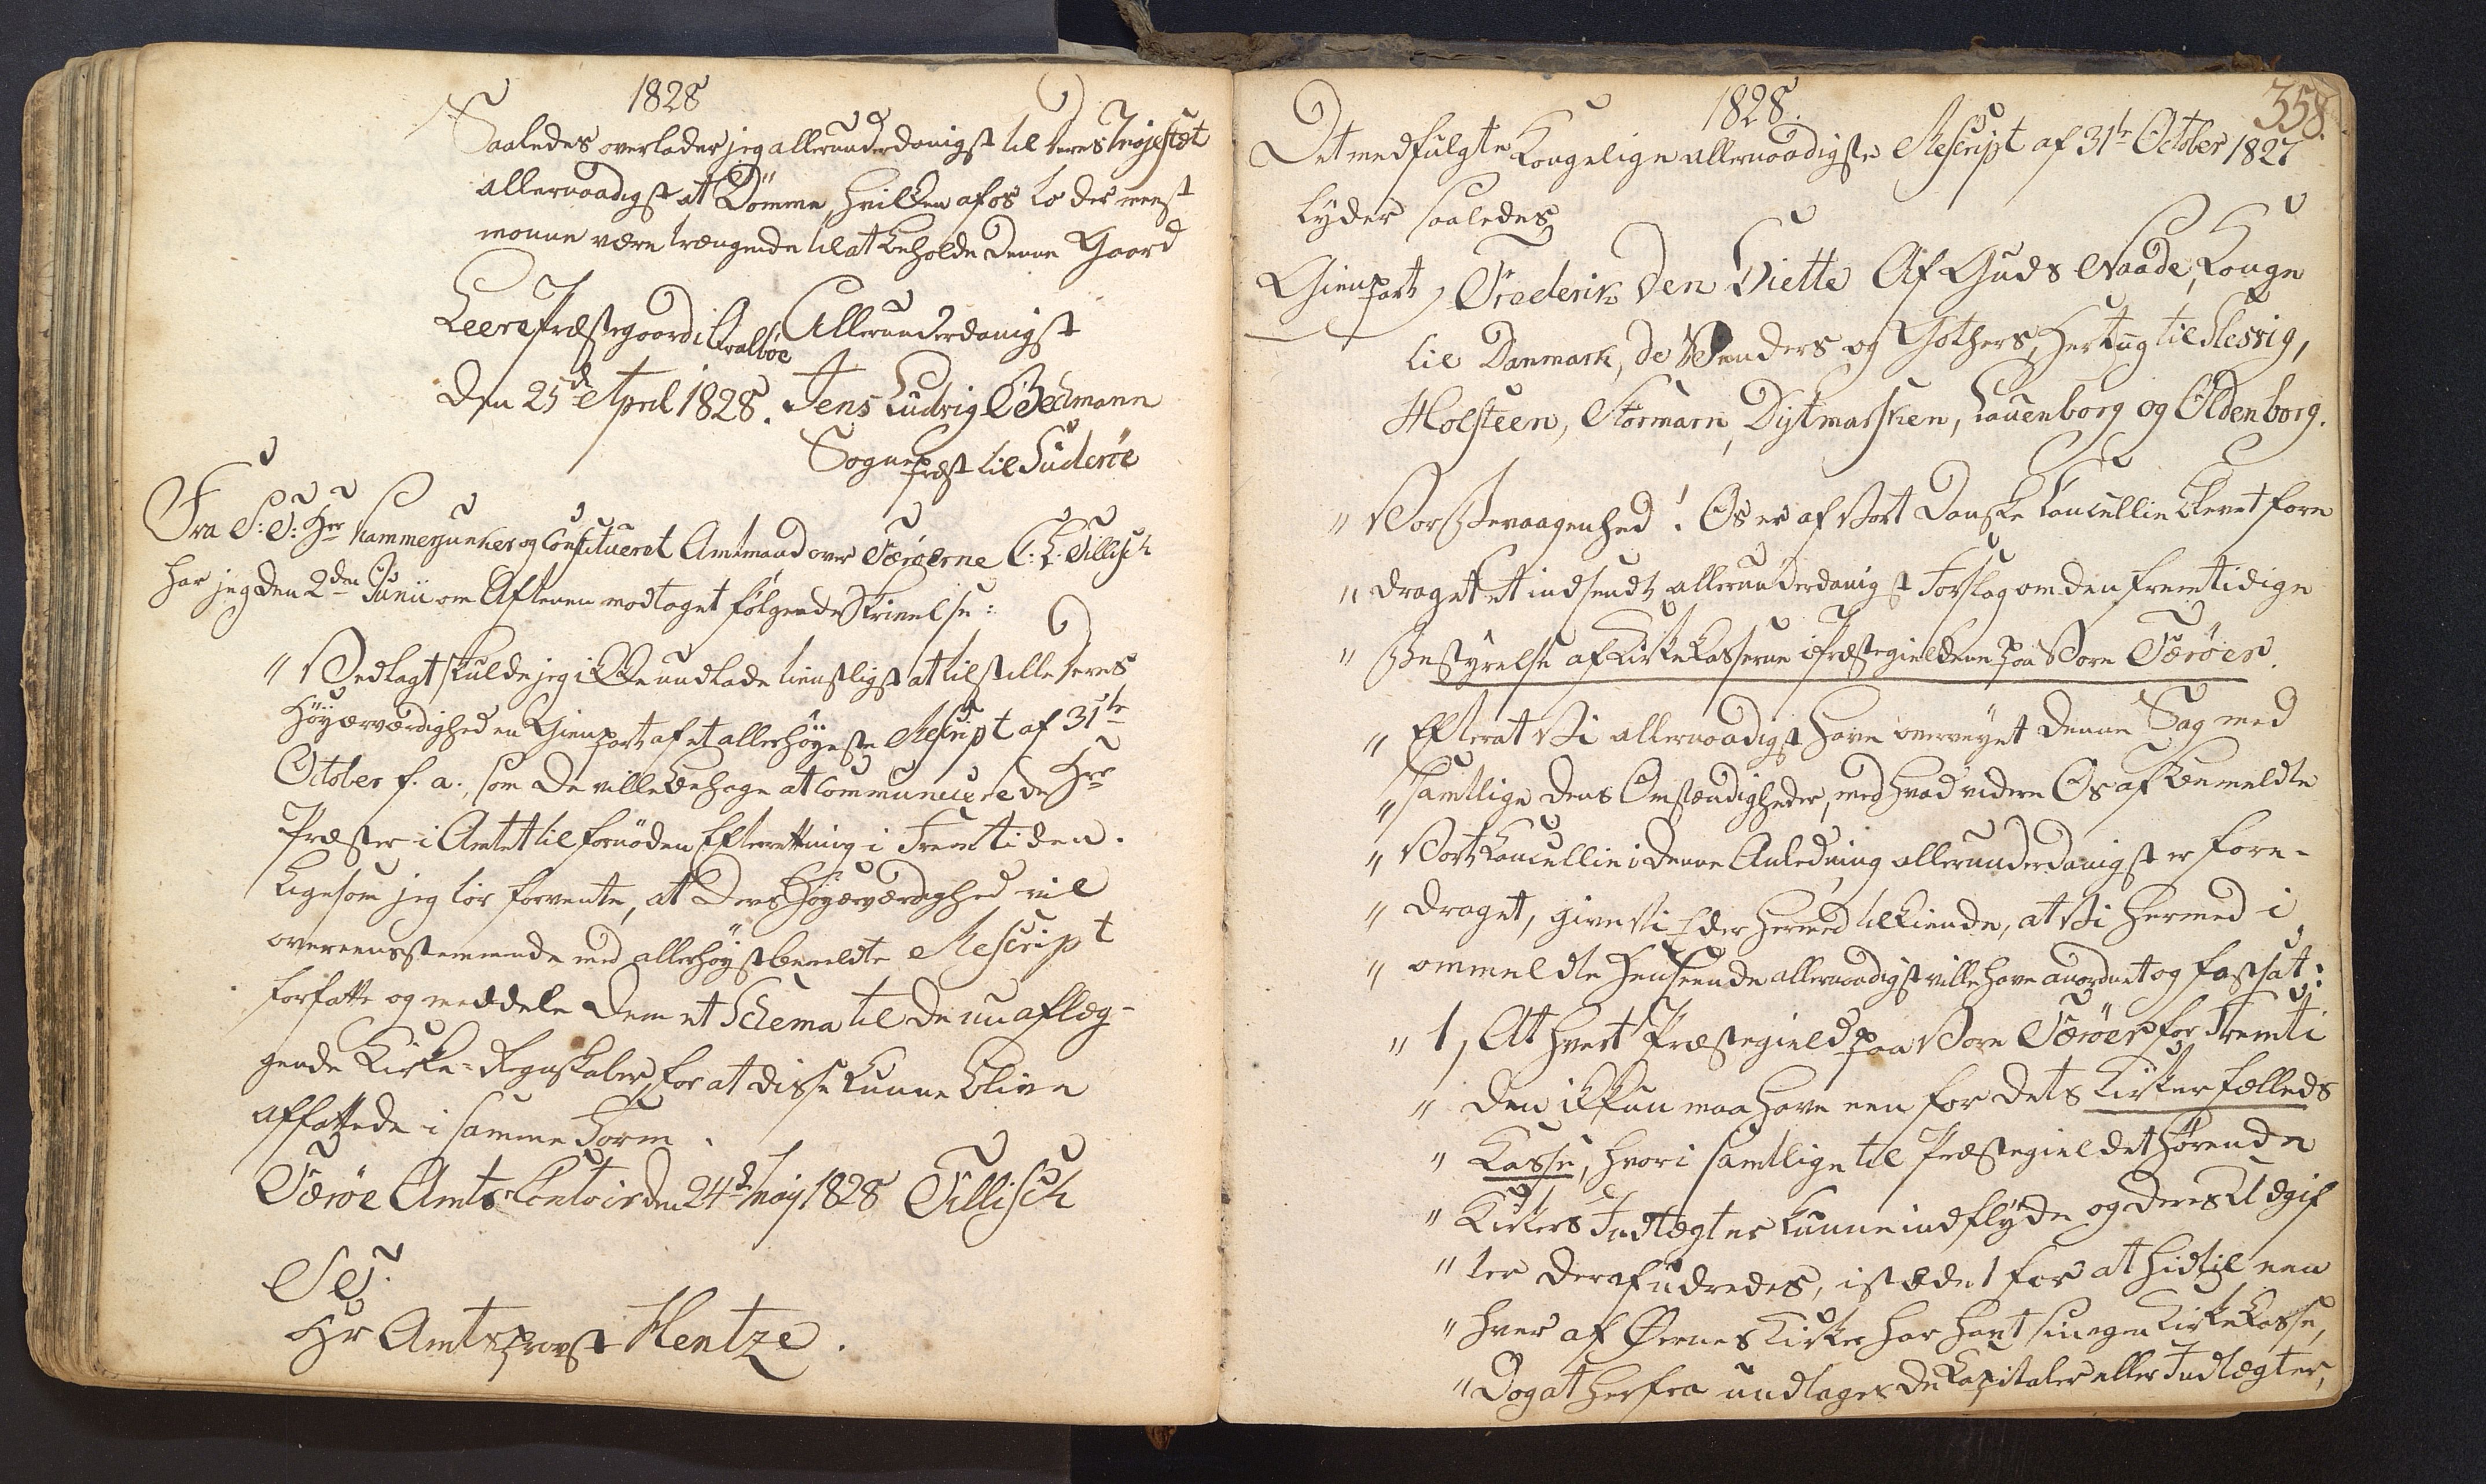 1828
Saaledes overlader jeg allerunderdanigst til Deres Majestæt
allernaadigst at Dömme, hvilken af os to der meest
monne være trængende til at beholde denne Gaard
Allerunderdanigst
Leere Præstegaard i Qvalbøe
den 25de April 1828. Jens Ludvig Bechmann
Sognepræst til Suderöe
Fra S: T: Hr Kammerjunker og Constitueret Amtmand over Færöerne C: L. Tillisch
har jeg den 2den Junii om Aftenen modtaget følgende Skrivelse:
" Vedlagt skulde jeg ikke undlade tienstligst at tilstille Deres
Höyærværdighed en Gienpart af et allerhöyeste Rescript af 31te
October f. a., som De ville behage at communicere de Hrr
Præster i Amtet til fornöden Efterretning i Fremtiden.
Ligesom jeg tör forvente, at Deres Höyærværdighed vil
overeensstemmende med allerhöystbemeldte Rescript
forfatte og meddele dem et Schema til de nu aflæg-
gende Kirke-Regnskaber, for at disse kunne blive
affattede i samme Form.
Færöe Amts Contoir den 24de May 1828 Tillisch
S T.
Hr Amtsprovst Hentze.
1828.
358.
Det medfulgte Kongelige allernaadigste Rescript af 31te October 1827
lyder saaledes
Gienpart, Frederik den Siette Af Guds Naade, Konge
til Danmark, de Venders og Gothers, Hertug til Slesvig,
Holsteen, Stormarn, Dytmarsken, Lauenborg og Oldenborg.
" Vor Bevaagenhed! Os er af Vort Danske Cancellie blevet fore
" draget et indsendt allerunderdanigst Forslag om den fremtidige
" Bestyrelse af Kirkekasserne i Præstegieldene paa Vore Færöer.
" Efterat Vi allernaadigst have overveyet denne Sag med
" samtlige dens Omstændigheder, med hvad videre Os af bemeldte
" Vort Cancellie i denne Anledning allerunderdanigst er fore-
" draget, give Vi Eder hermed tilkiende, at Vi hermed i
" ommeldte Henseende allernaadigst ville have anordnet og fastsat:
" 1, At hvert Præstegield paa Vore Færöer for Fremti
" den ikkun maa have een for dets Kirker fælleds
" Kasse, hvori samtlige til Præstegieldet hörende
" Kirkers Indtægter kunne indflyde og deres Udgif
" ter deraf udredes, istedet for at hidtil een
" hver af Öernes Kirker har havt sin egen Kirkekasse,
" Dog at herfra undtages de Kapitaler eller Indtægter,